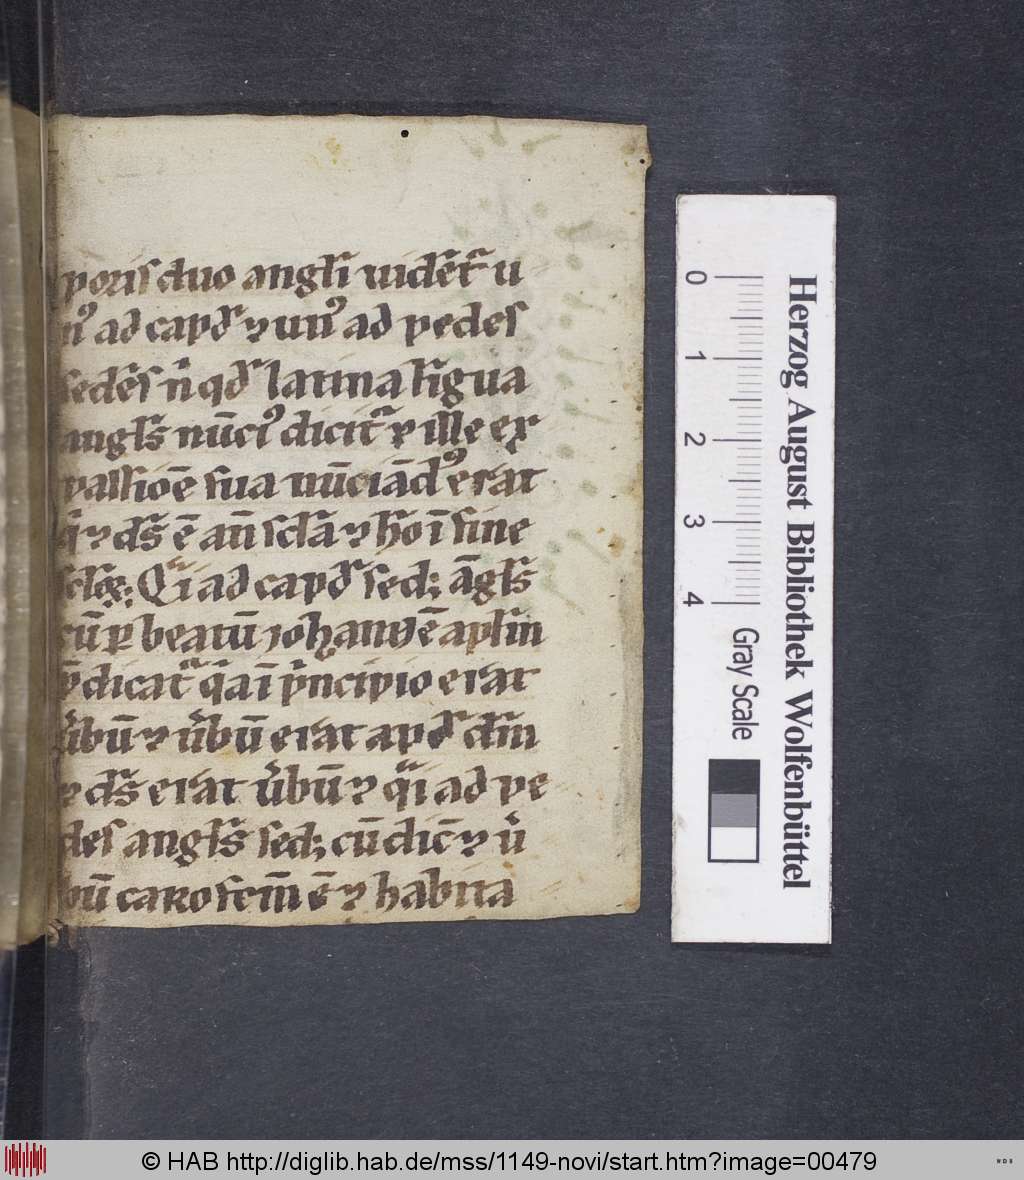 poris duo angłi uidēt᷑ u
nꝰ ad capđ ⁊ unꝰ ad pedes
sedēs n̄ qđ latina līgua
angłs nūciꝰ dicit᷑ ⁊ ille ex
passiōe sua nūciādꝰ erat
q̄ ⁊ ds̄ ē an̄ scła ⁊ ho ī fine
scłoꝝ. Qͥi ad capđ sedꝫ āgłs
cū ꝑ beatū iohannē apłm
p̄dicat᷑ qͥa ī pͥncipio erat
u̾bū ⁊ u̾bū erat apđ dm̄
⁊ ds̄ erat u̾bū ⁊ qͣi ad pe
des angłs sedꝫ cū dic̄ ⁊ u̾
bū caro fcm̄ ē ⁊ habita
0 1 2 3 4
Gray Scale
Herzog August Bibliothek Wolfenbüttel
© HAB http://diglib.hab.de/mss/1149-novi/start.htm?image=00479